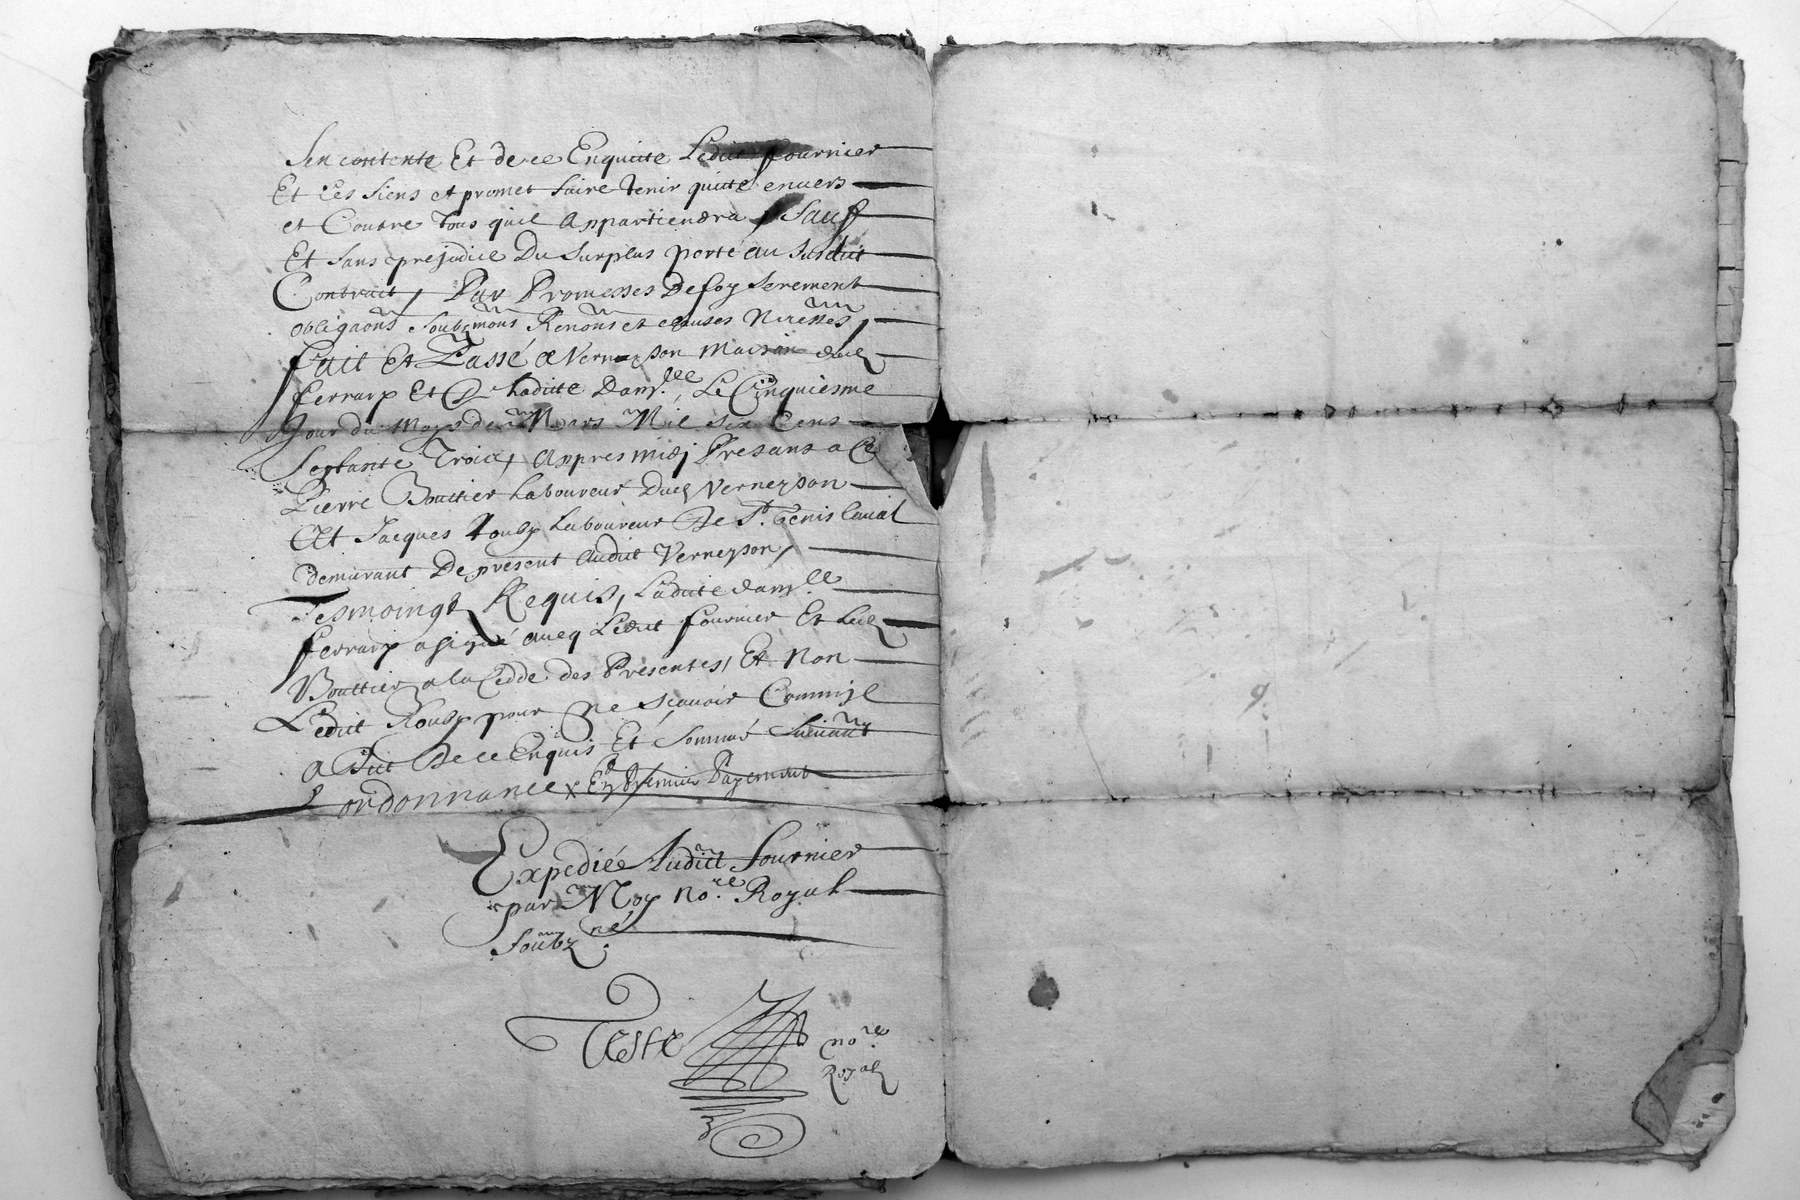 Sen contente Et de ce Enquitte Ledit fournier
Et Les siens et promet faire tenir quitte envers
et Contre tous quil Appartiendra, Sauf
Et sans prejudice Du surplus porté au susdit
Contrait, Par Promesses De foy serement
obligaons soubzmons Renons et clauses Neresses,
fait Et Passé a Verneyson Maison dud
ferrary Et De laditte dam.lle, Le Cinquiesme
Jour du moys de Mars Mil six Cens
Septante Troix, Appres midj Presans a Ce
Pierre Bouttier Laboureur dud Verneyson
Et Jacques Rouly Laboureur De St. Genis Laual
demurant De present audit Verneyson,
Tesmoingz Requis, Ladite dam.lle
ferrary a signé aueq Ledit fournier Et led
Bouttier a la Cedde des Presentes, Et Non
Ledit Rouly pour Ne scauoir Comm il
a Dit De ce Enquis Et sommé suiuant
L'ordonnance x En Premier Payement
Expediée Audict fournier
par Moy no.re Royal
soubz.né
Teste no.re
Royal